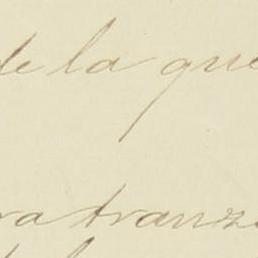 de la que
ra tranz